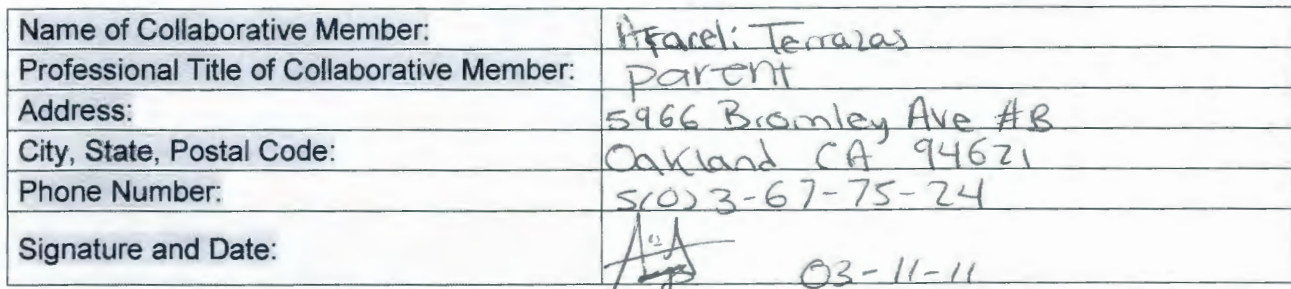 Name of Collaborative Member: Araceli Terrazas
Professional Title of Collaborative Member: parent
Address: 5966 Bromley Ave #B
City, State, Postal Code: Oakland CA 94621
Phone Number: 5(0) 3-67-75-24
Signature and Date: 03-11-11